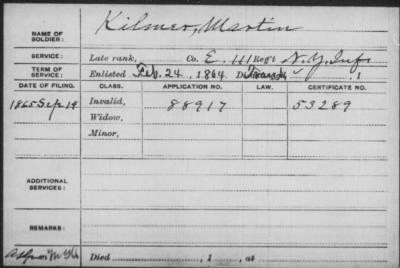 NAME OF SOLDIER: Kilmer, Martin
SERVICE: Late rank, Co. E. 111 Reg't N.Y. Inf.
TERM OF SERVICE: Enlisted Feb. 24, 1864 Di , 1
DATE OF FILING. CLASS. APPLICATION NO. LAW. CERTIFICATE NO.
1865 Sep 19 Invalid, 88917 53289
Widow,
Minor,
ADDITIONAL SERVICES:
REMARKS:
Died , 1 , at